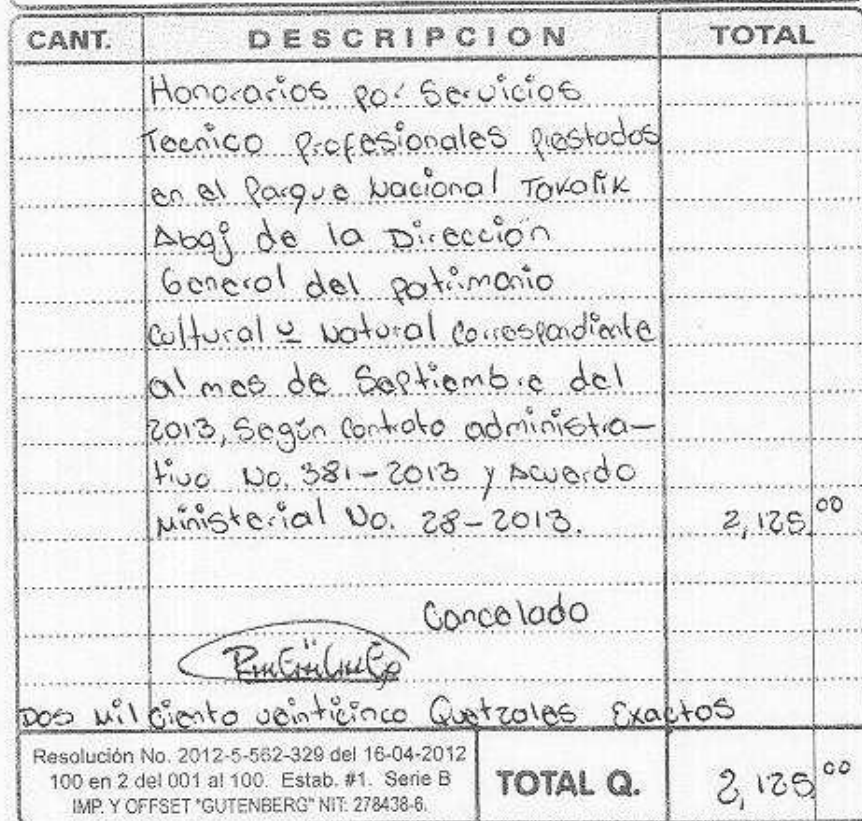 CANT. DESCRIPCION TOTAL
Honorarios por Servicios
Tecnico Profesionales prestados
en el Parque Nacional Takalik
Abaj de la Dirección
General del patrimonio
Cultural y Natural Correspondiente
al mes de Septiembre del
2013, Según Contrato administra-
tivo No. 381-2013 y Acuerdo
Ministerial No. 28-2013. 2,125.00
Cancelado
Dos Mil Ciento veinticinco Quetzales Exactos
Resolución No. 2012-5-562-329 del 16-04-2012
100 en 2 del 001 al 100. Estab. #1. Serie B
IMP. Y OFFSET "GUTENBERG" NIT: 278438-6.
TOTAL Q. 2,125.00